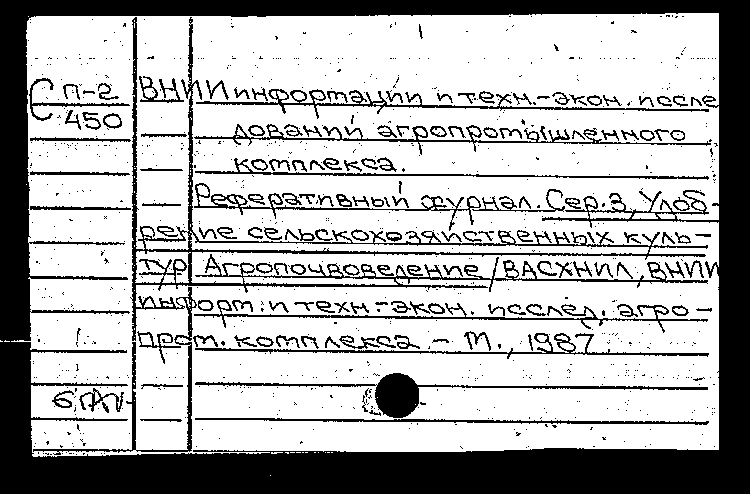 С п-2 ВНИИинформации и техн.-экон. иссле
450 дований агропромышленного
комплекса.
Реферативный журнал. Сер.3, Удоб-
рение сельскохозяйственных куль-
тур Агропочвоведение/ВАСХНИЛ, ВНИИ
информ. и техн.-экон. исслед. агро-
пром. комплекса - М., 1987.